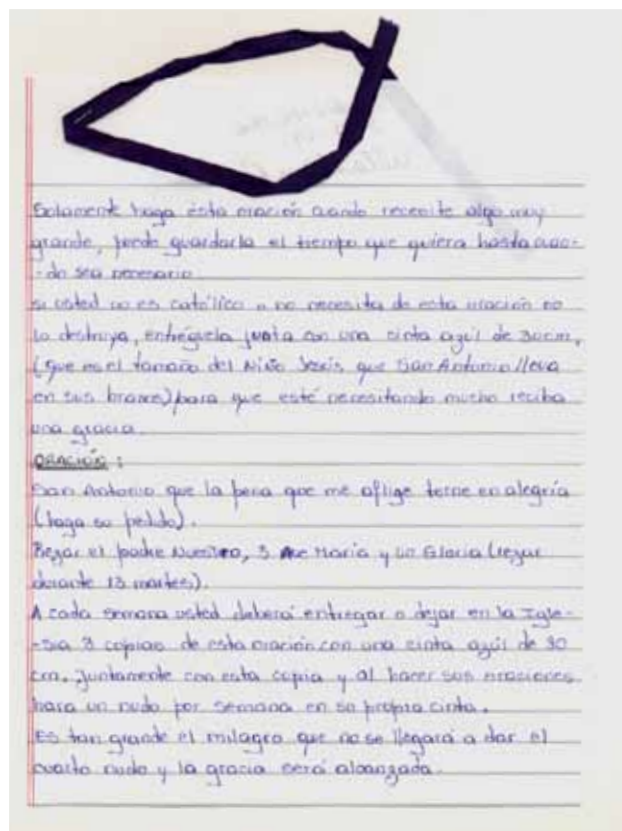 Solamente haga ésta oración cuando necesite algo muy
grande, puede guardarla el tiempo que quiera hasta cuan-
-do sea necesario
si usted no es católico o no necesita de esta oración no
la destruya, entréguela junta con una cinta azúl de 30cm,
(que es el tamaño del Niño Jesús que San Antonio lleva
en sus brazos) para que esté necesitando mucho reciba
una gracia.
ORACIÓN :
San Antonio que la pena que me aflige torne en alegría
(haga su pedido).
Rezar el padre Nuestro, 3 Ave Maria y un Gloria (rezar
durante 13 martes).
A cada semana usted deberá entregar o dejar en la Igle-
-sia 3 copias de esta oración con una cinta azúl de 30
cm. Juntamente con esta copia y al hacer sus oraciones
hara un nudo por semana en su propia cinta.
Es tan grande el milagro que no se llegará a dar el
cuarto nudo y la gracia será alcanzada.